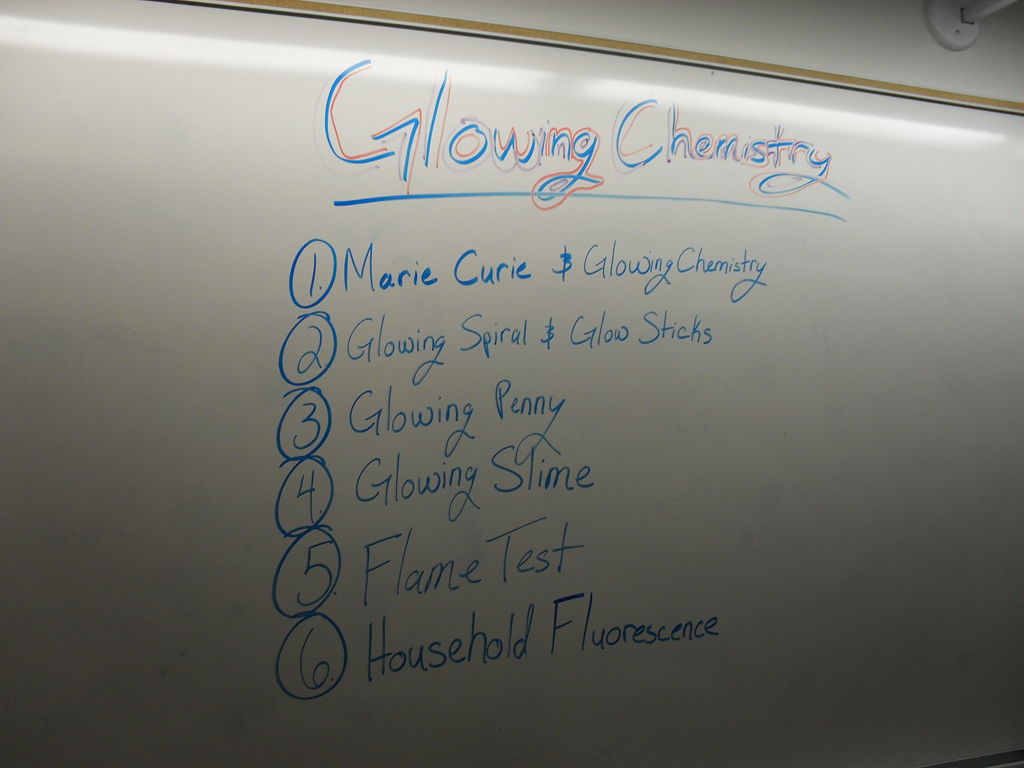 Glowing Chemistry
1. Marie Curie & Glowing Chemistry
2. Glowing Spiral & Glow Sticks
3. Glowing Penny
4. Glowing Slime
5. Flame Test
6. Household Fluorescence